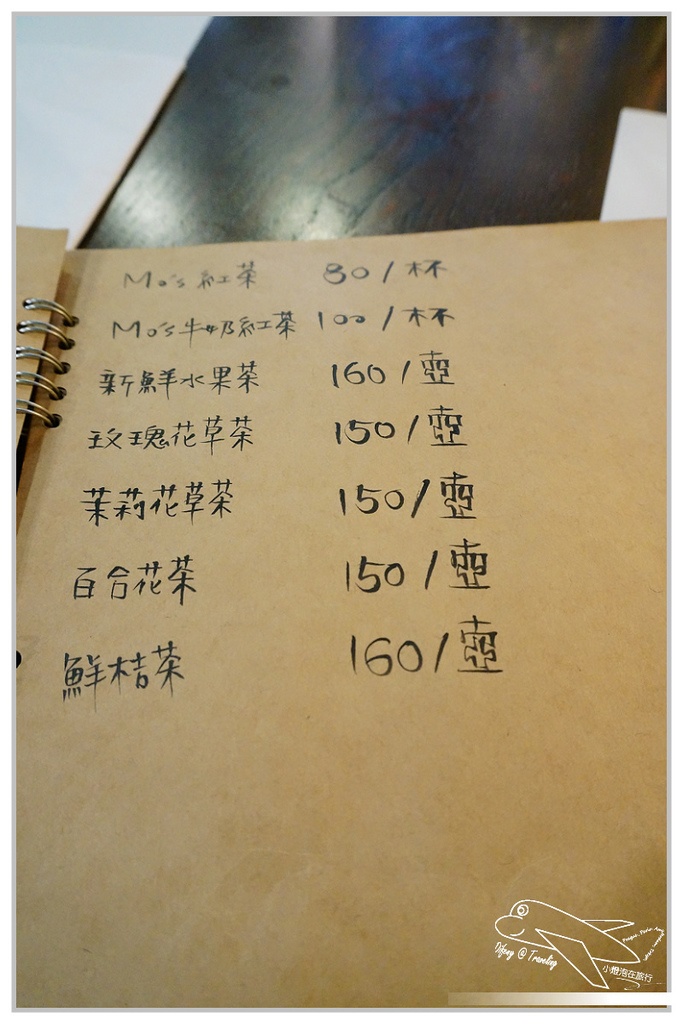 Mo's 紅茶 80 / 杯
Mo's 牛奶紅茶 100 / 杯
新鮮水果茶 160 / 壺
玫瑰花草茶 150 / 壺
茉莉花草茶 150 / 壺
百合花茶 150 / 壺
鮮桔茶 160 / 壺
Difeny @ Traveling
小燈泡在旅行